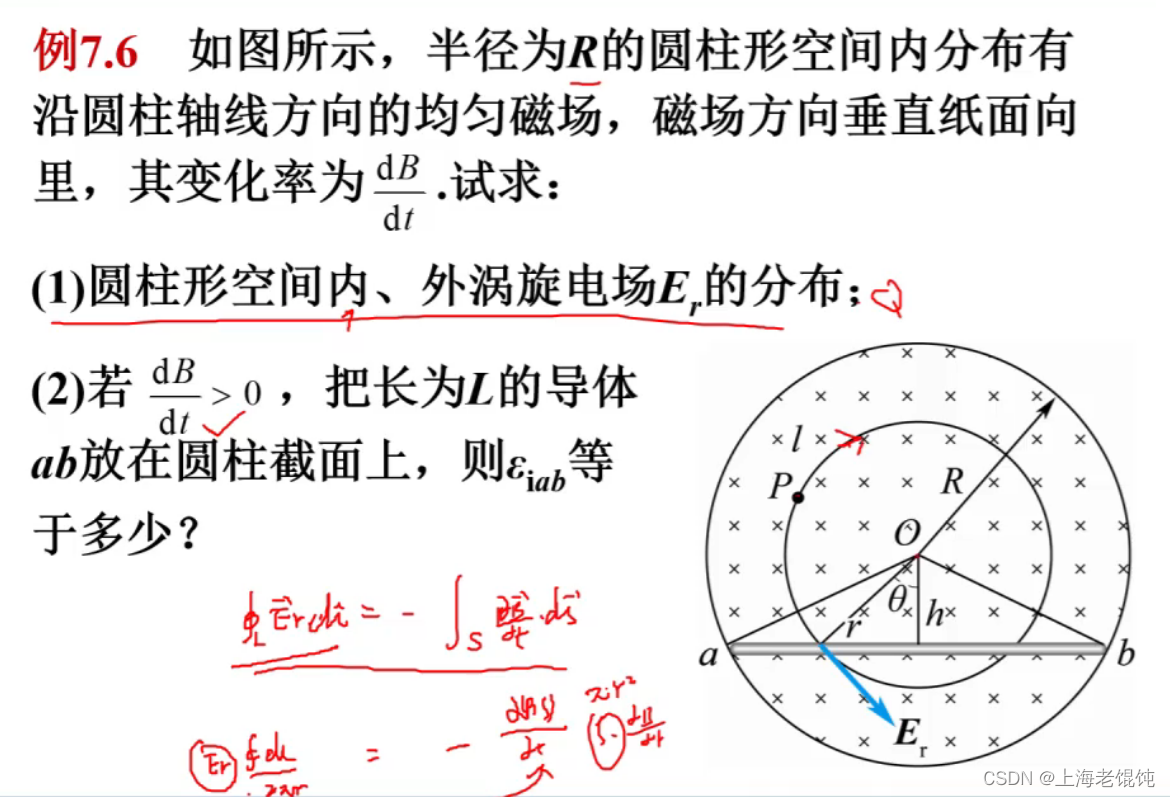 例7.6 如图所示，半径为R的圆柱形空间内分布有
沿圆柱轴线方向的均匀磁场，磁场方向垂直纸面向
里，其变化率为 dB/dt .试求：
(1)圆柱形空间内、外涡旋电场Er的分布；
(2)若 dB/dt > 0 ，把长为L的导体
ab放在圆柱截面上，则εiab等
于多少？
l
P
R
O
θ
h
r
a
b
Er
CSDN @上海老馄饨